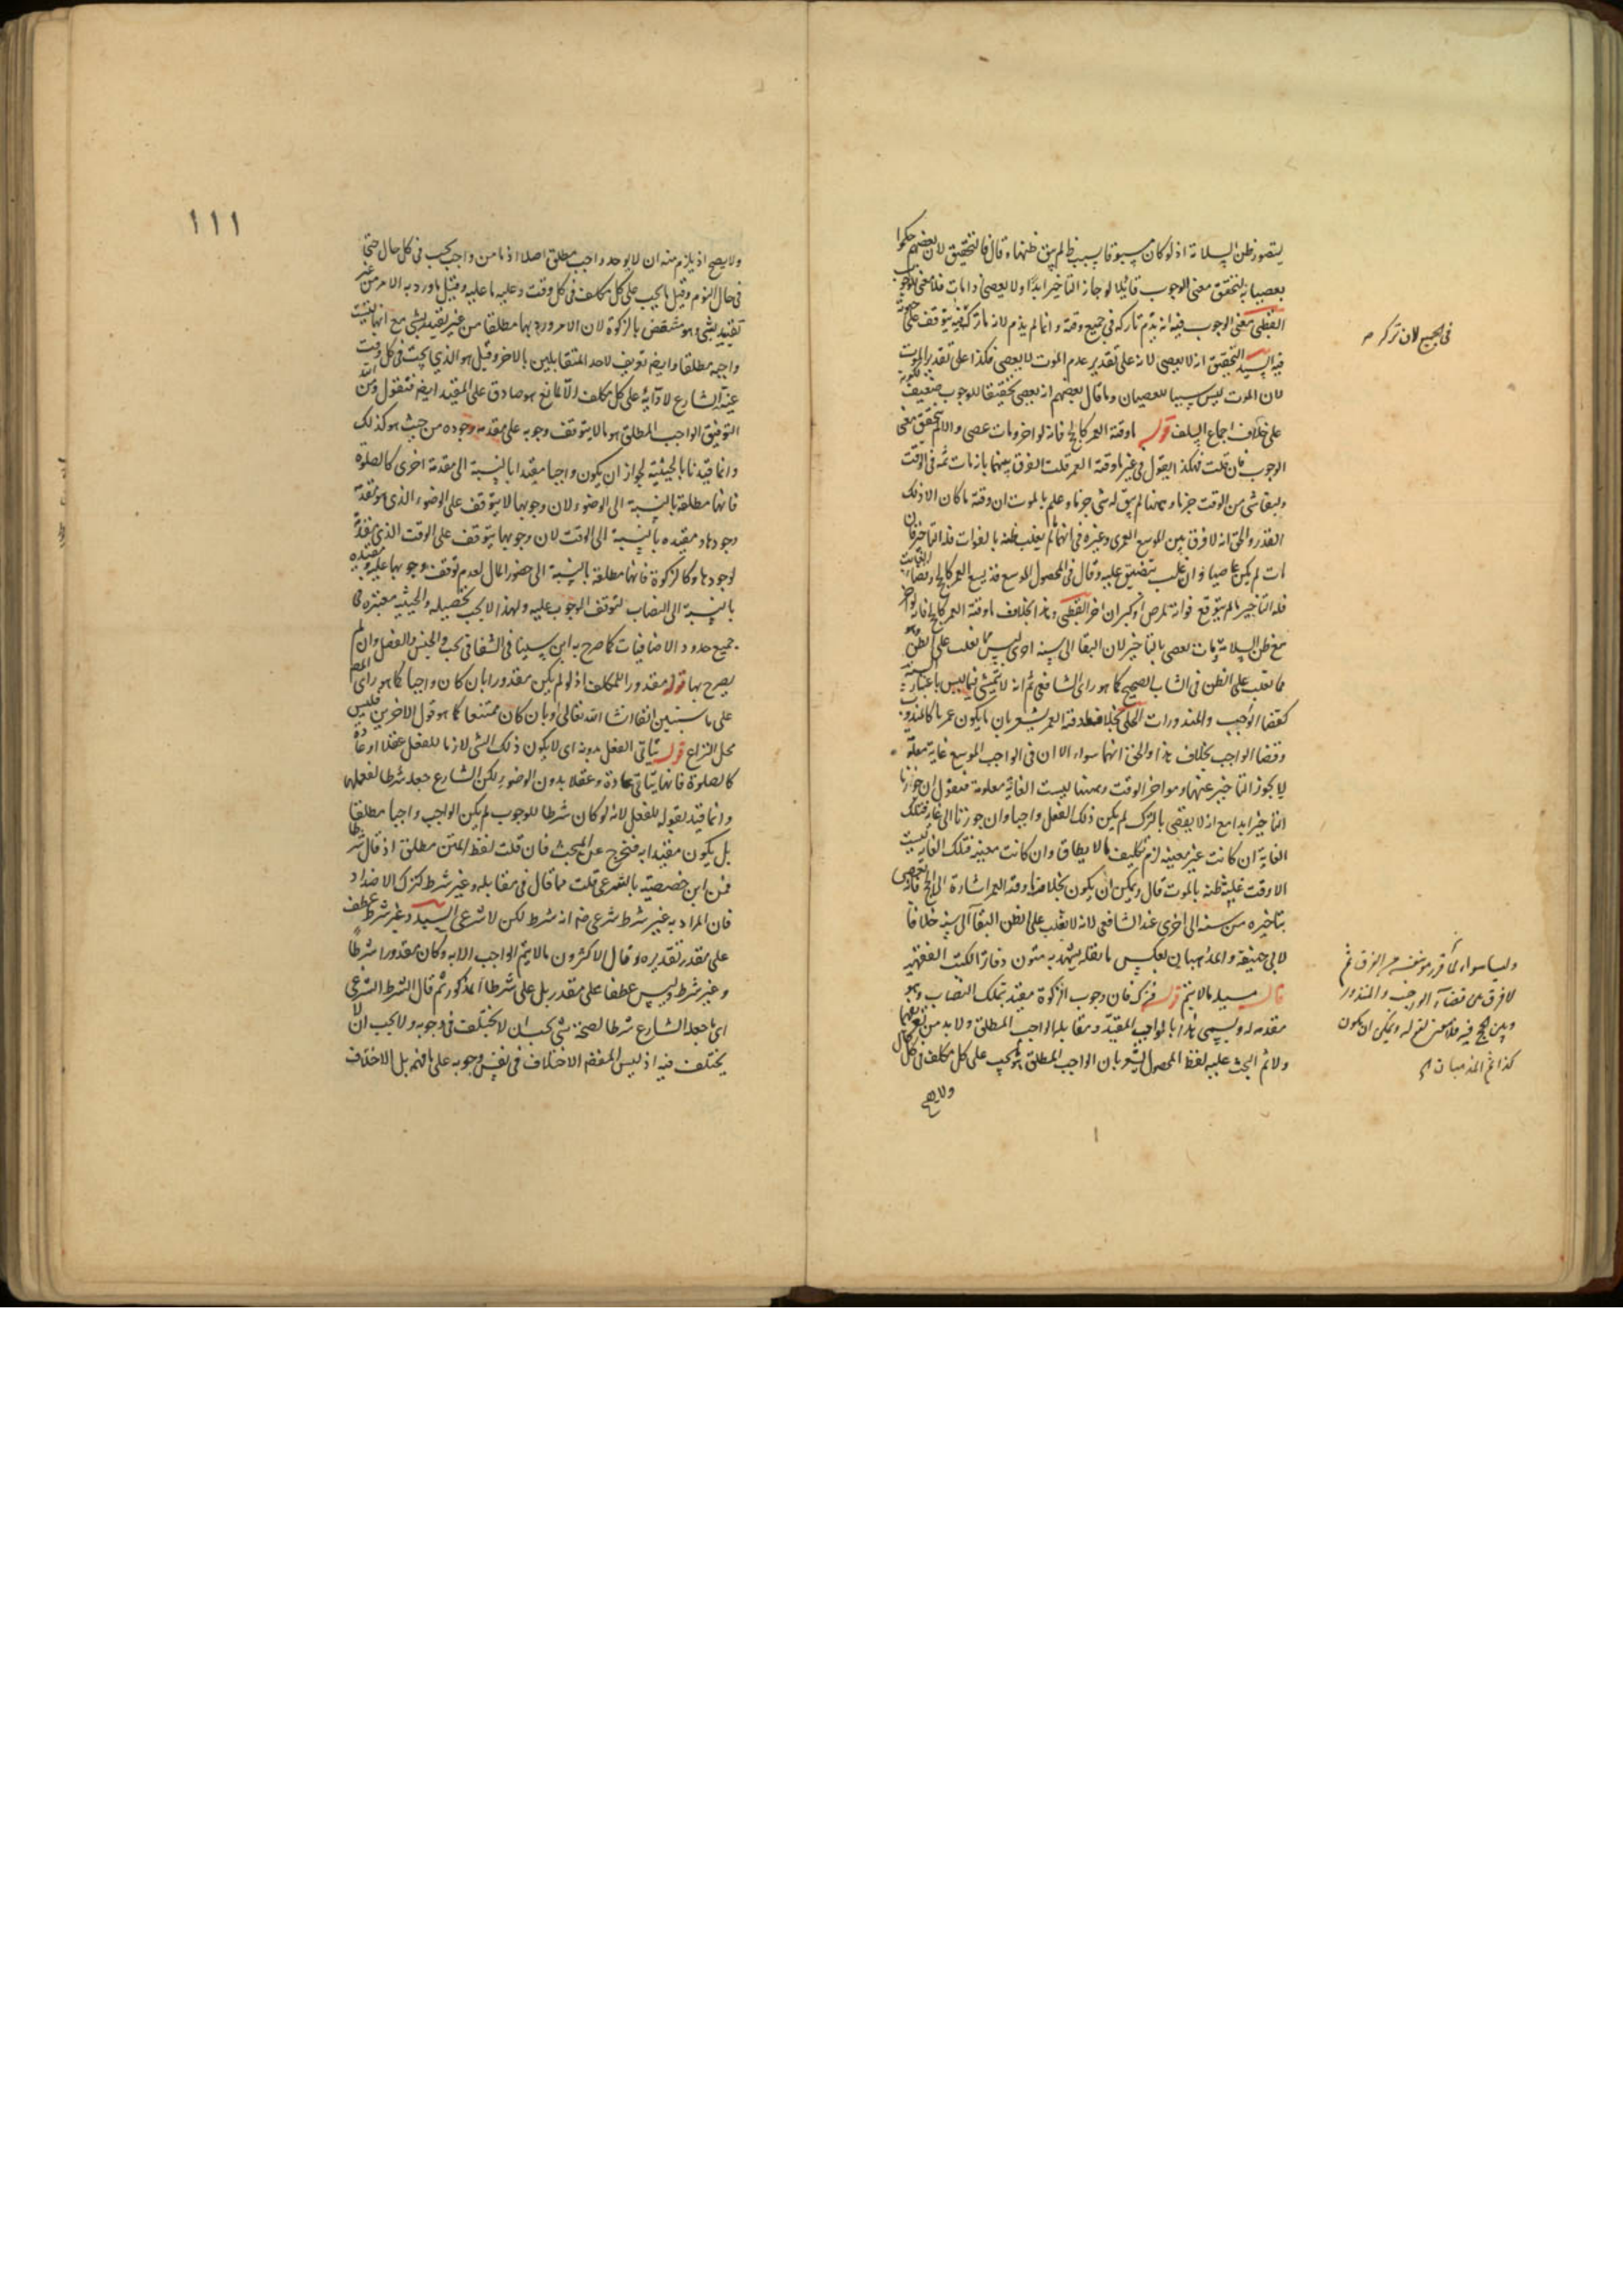 يتصور ظن السلامة اذ لو كان مسبوقا بسبب ظالم يبق ظنها وقال فالتحقيق لان بعضهم حكموا
بعصيانه لتحقق معنى الوجوب قائلا لو جاز التاخير ابدا ولا يعصى ذا مات فلا معنى للوجوب
القطبى معنى الوجوب فيه انه يذم تاركه في جميع وقته وانما لم يذم لانه ما ترك
فيه السيد التحقيق انه لا يعصى لانه على تقدير عدم الموت لا يعصى فكذا على تقدير الموت
لان الموت ليس سببا للعصيان وما قال بعضهم انه يعصى تحقيقا للوجوب ضعيف
على خلاف اجماع السلف قوله ما وقته العمر كالحج فانه لو اخر ومات عصى والا لم يتحقق معنى
الوجوب فان قلت فكذا يقول في غير ما وقته العمر قلت الفرق بينهما بانه مات ثمه في الوقت
وبقاء شى من الوقت جزما وههنا لم يبق له شى جزما وعلم بالموت ان وقته ما كان الا ذلك
القدر والحق انه لا فرق بين الموسع العمرى وغيره في انه ما لم يغلب ظنه بالفوات فله التاخير فان
مات لم يكن عاصيا وان غلب تضيق عليه وقال في المحصول الموسع قد يسع العمر كالحج وقضاء الفائت
فله التاخير ما لم يتوقع فواته لمرض او كبر ان اخر القطبى وهذا بخلاف ما وقته العمر كالحج فانه لو اخر
مع ظن السلامة ومات يعصى بالتاخير لان البقا الى سنة اخرى ليس مما يغلب على الظن
مما يغلب على الظن في الشاب الصحيح كما هو راى الشافعى ثم انه لا يتمشى فيما ليس باعتبار السنة
كقضاء الواجب والمنذورات الحلى بخلاف ما وقته العمر يشعر بان ما يكون عمريا كالمنذور
وقضا الواجب بخلاف هذا والحق انهما سواء الا ان في الواجب الموسع غاية معلومة
لا يجوز التاخير عنها وهو اخر الوقت وههنا ليست الغاية معلومة فنقول ان جوزنا
التاخير ابدا مع انه لا يقضى بالترك لم يكن ذلك الفعل واجبا وان جوزنا الى غاية فتلك
الغاية ان كانت غير معينة لزم تكليف ما لا يطاق وان كانت معينة فتلك الغاية ليست
الا وقت غلبة ظنه بالموت قال ويمكن ان يكون بخلاف ما وقته العمر اشارة الى الحج فانه يعصى
بتاخيره من سنة الى اخرى عند الشافعى لانه لا يغلب على الظن البقاء الى سنة خلافا
لابى حنيفة والمذهبان بعكس ما نقله يشهد به متون دفاتر الكتب الفقهية
قال مسئلة ما لا يتم قوله فان وجوب الزكوة مقيد بتملك النصاب وهو
مقدمه له ويسمى هذا بالواجب المقيد ومقابله الواجب المطلق ولا بد من تعريفهما
ولاثم البحث عليه لفظ المحصول يشعر بان الواجب المطلق ما يجب على كل مكلف في كل حال
ولا يصح
في الجميع لان ترك
لا فرق بين قضاء الواجب والمنذور
وبين الحج فيه فلا معنى لقوله ويمكن ان يكون
كذا ثم المذهبان
١١١
ولا يصح اذ يلزم منه ان لا يوجد واجب مطلق اصلا اذ ما من واجب يجب في كل حال حتى
في حال النوم وقيل ما يجب على كل مكلف في كل وقت وعليه ما عليه وقيل ما ورد به الامر من غير
تقييد بشى وهو منتقض بالزكوة لان الامر ورد بها مطلقا من غير تقييد بشى مع انها ليست
واجبة مطلقا وايضا تعريف لاحد المتقابلين بالاخر وقيل هو الذى يجب في كل وقت
عينه الشارع لادائه على كل مكلف الا لمانع هو صادق على المقيد ايضا فنقول ومن الله
التوفيق الواجب المطلق هو ما لا يتوقف وجوبه على مقدمة وجوده من حيث هو كذلك
وانما قيدنا بالحيثية لجواز ان يكون واجبا مقيدا بالنسبة الى مقدمة اخرى كالصلوة
فانها مطلقة بالنسبة الى الوضوء لان وجوبها لا يتوقف على الوضوء الذى هو مقدمة
وجودها ومقيده بالنسبة الى الوقت لان وجوبها يتوقف على الوقت الذى مقدمة
لوجودها وكالزكوة فانها مطلقة بالنسبة الى حضور المال لعدم توقف وجوبها عليه ومقيده
بالنسبة الى النصاب لتوقف الوجوب عليه ولهذا لا يجب تحصيله والحيثية معتبرة في
جميع حدود الاضافيات كما صرح به ابن سينا في الشفا في بحث الجنس والفصل وان لم
يصرح بها قوله مقدورا للمكلف اذ لو لم يكن مقدورا بان كان واجبا كما هو راى المص
على ما سنبين ان شاء الله تعالى او بان كان ممتنعا كما هو قول الاخرين فليس
محل النزاع قوله يتاتى الفعل بدونه اى لا يكون ذلك الشى لازما للفعل عقلا او عادة
كالصلوة فانها يتاتى عادة وعقلا بدون الوضوء لكن الشارع جعله شرطا لفعلها
وانما قيد بقوله للفعل لانه لو كان شرطا للوجوب لم يكن الواجب واجبا مطلقا
بل يكون مقيدا به فتخرج عن المبحث فان قلت لفظ المتن مطلق اذ قال شرطا
فمن اين خصصته بالشرعى قلت مما قال في مقابله وغير شرط كترك الاضداد
فان المراد به غير شرط شرعى ضم انه شرط لكن لا شرعى السيد وغير شرط عطف
على مقدر تقديره وقال الاكثرون ما لا يتم الواجب الا به وكان مقدورا شرطا
وغير شرط وليس عطفا على مقدر بل على شرطا المذكور ثم قال الشرط الشرعى
اى ما جعله الشارع شرطا لصحة شى يجب ان لا يختلف في وجوبه ولا يجب ان لا
يختلف فيه اذ ليس المقصد الاختلاف في نفس وجوبه على ما فهم بل الاختلاف